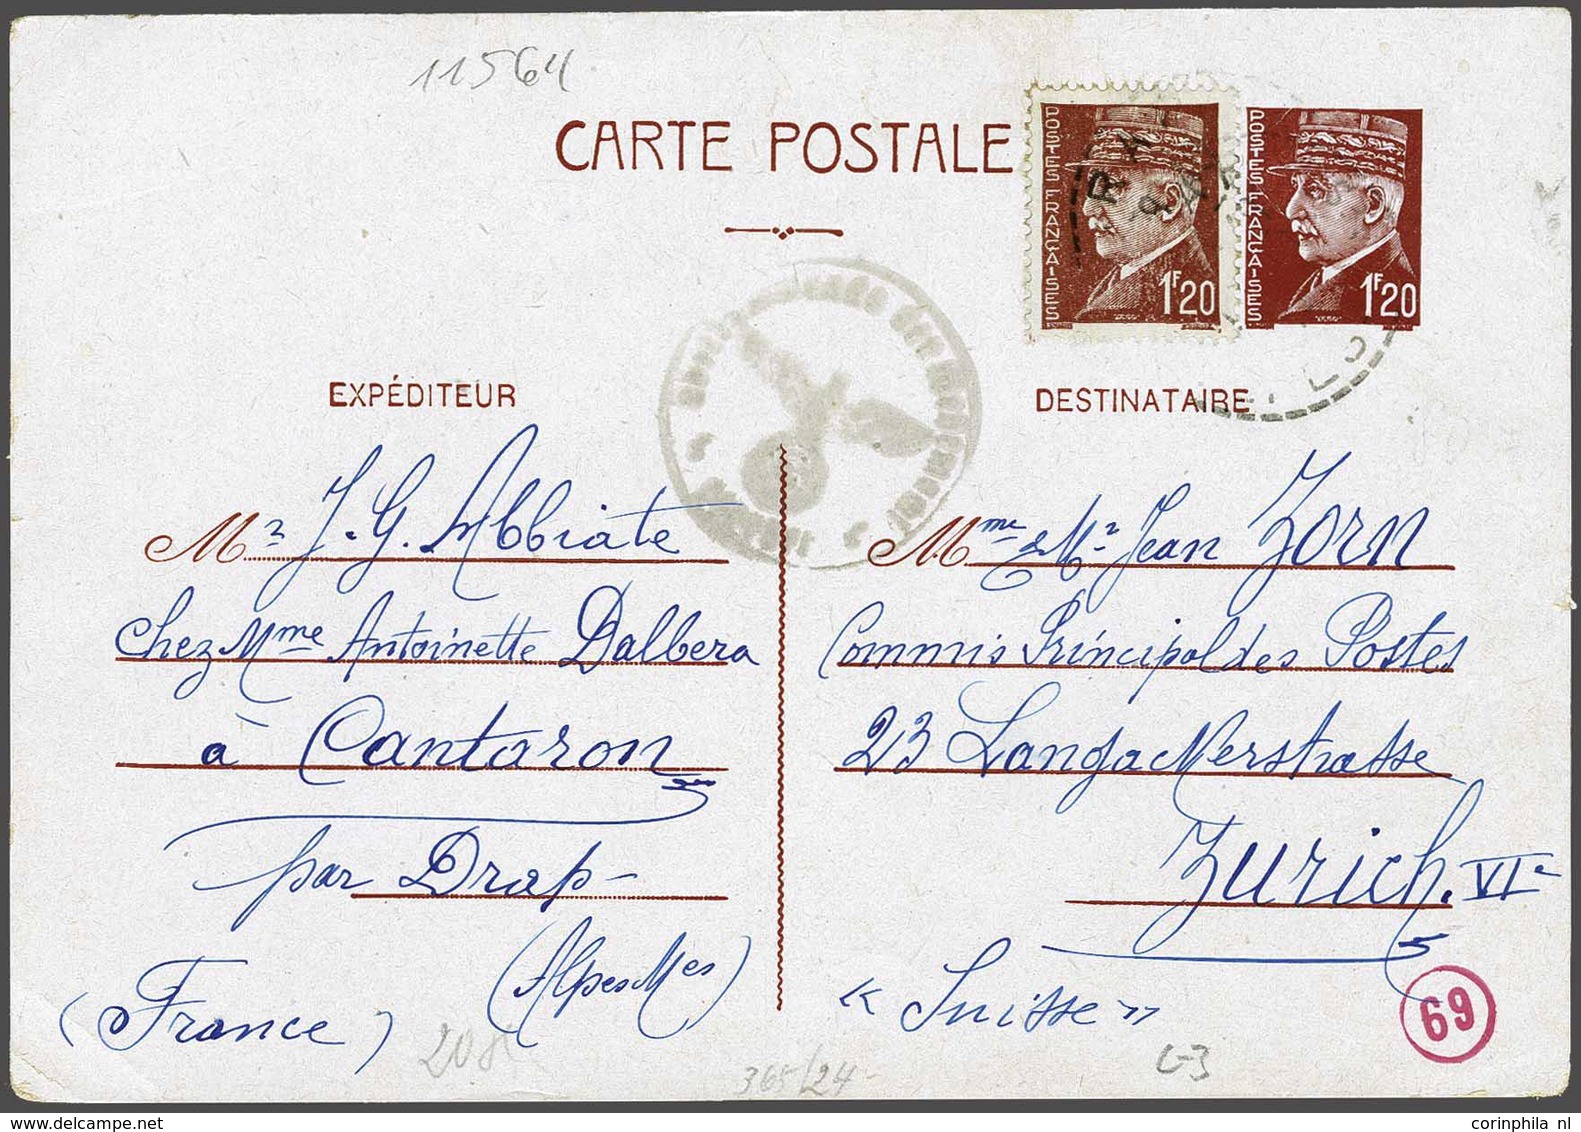 11564
CARTE POSTALE
POSTES FRANÇAISES
1F20
POSTES FRANÇAISES
1F20
EXPÉDITEUR
Mr J. G. Abbiate
chez Mme Antoinette Dalbera
à Cantaron
par Drap-
(Alpes Mes)
(France)
DESTINATAIRE
Mme & Mr Jean Zorn
Commis Principal des Postes
23 Langackerstrasse
Zurich. VIe
« Suisse »
69
365/24
C-3
corinphila nl